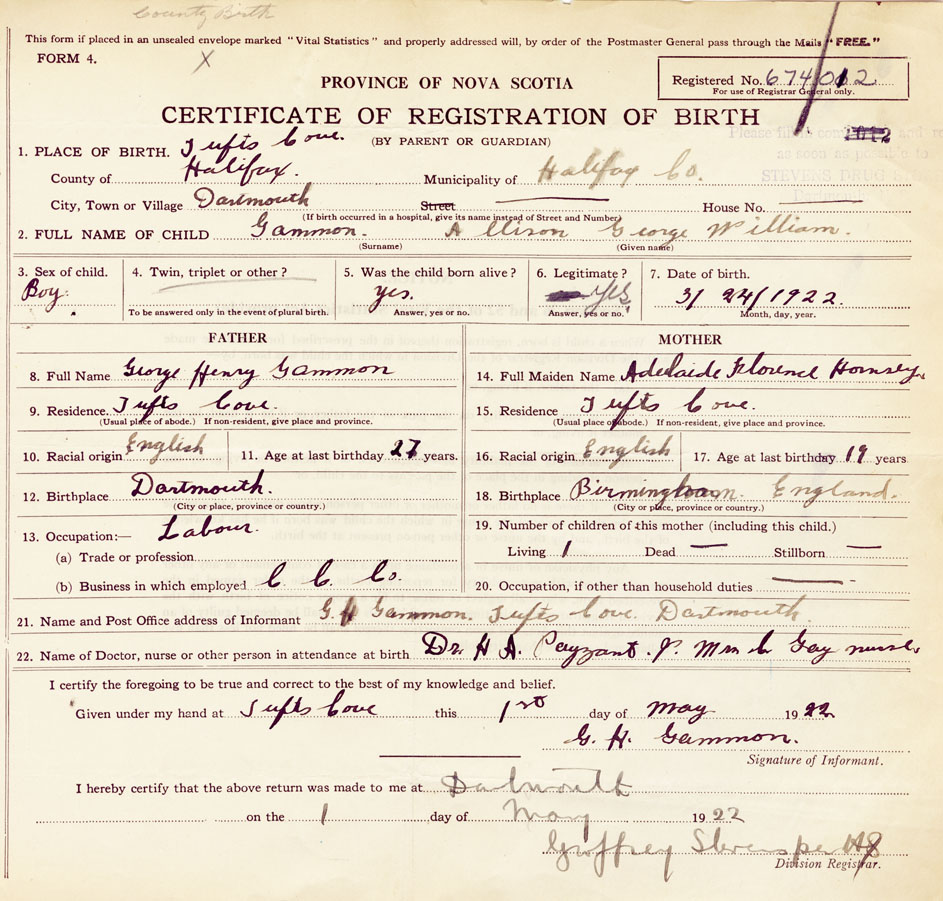 County Birth
This form if placed in an unsealed envelope marked "Vital Statistics" and properly addressed will, by order of the Postmaster General pass through the Mails "FREE."
FORM 4. X
Registered No. 674012
For use of Registrar General only.
PROVINCE OF NOVA SCOTIA
CERTIFICATE OF REGISTRATION OF BIRTH
(BY PARENT OR GUARDIAN)
1. PLACE OF BIRTH. Tufts Cove.
County of Halifax. Municipality of Halifax Co.
City, Town or Village Dartmouth Street House No.
(If birth occurred in a hospital, give its name instead of Street and Number)
2. FULL NAME OF CHILD Gammon. Allison George William.
(Surname) (Given name)
3. Sex of child. 4. Twin, triplet or other? 5. Was the child born alive? 6. Legitimate? 7. Date of birth.
Boy. yes. Yes 3/24/1922.
To be answered only in the event of plural birth. Answer, yes or no. Answer, yes or no. Month, day, year.
FATHER MOTHER
8. Full Name George Henry Gammon 14. Full Maiden Name Adelaide Florence Hornsey
9. Residence. Tufts Cove. 15. Residence Tufts Cove.
(Usual place of abode.) If non-resident, give place and province. (Usual place of abode.) If non-resident, give place and province.
10. Racial origin English 11. Age at last birthday 27 years. 16. Racial origin English 17. Age at last birthday 19 years
12. Birthplace Dartmouth. 18. Birthplace Birmingham. England.
(City or place, province or country.) (City or place, province or country.)
13. Occupation:— Labour. 19. Number of children of this mother (including this child.)
(a) Trade or profession Living 1 Dead — Stillborn —
(b) Business in which employed C C. Co. 20. Occupation, if other than household duties —
21. Name and Post Office address of Informant G. H Gammon. Tufts Cove. Dartmouth
22. Name of Doctor, nurse or other person in attendance at birth Dr. H A. Payzant. Mrs C Gay nurse
I certify the foregoing to be true and correct to the best of my knowledge and belief.
Given under my hand at Tufts Cove this 1st day of May 1922
G. H. Gammon.
Signature of Informant.
I hereby certify that the above return was made to me at Dartmouth
on the 1 day of May 1922
Geoffrey Stevens per
Division Registrar.